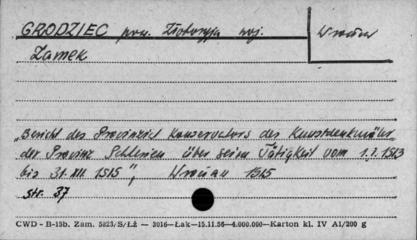 GRODZIEC pow. Złotoryja woj. Wrocław
Zamek
„Bericht des Provinzial Konservators der Kunstdenkmäler
der Provinz Schlesien über seine Tätigkeit vom 1.I.1913
bis 31.XII 1915", Wrocław 1915
str. 37
CWD - B-15b. Zam. 5823/S/ŁŻ — 3016—Łak—15.11.56—4.000.000—Karton kl. IV A1/200 g